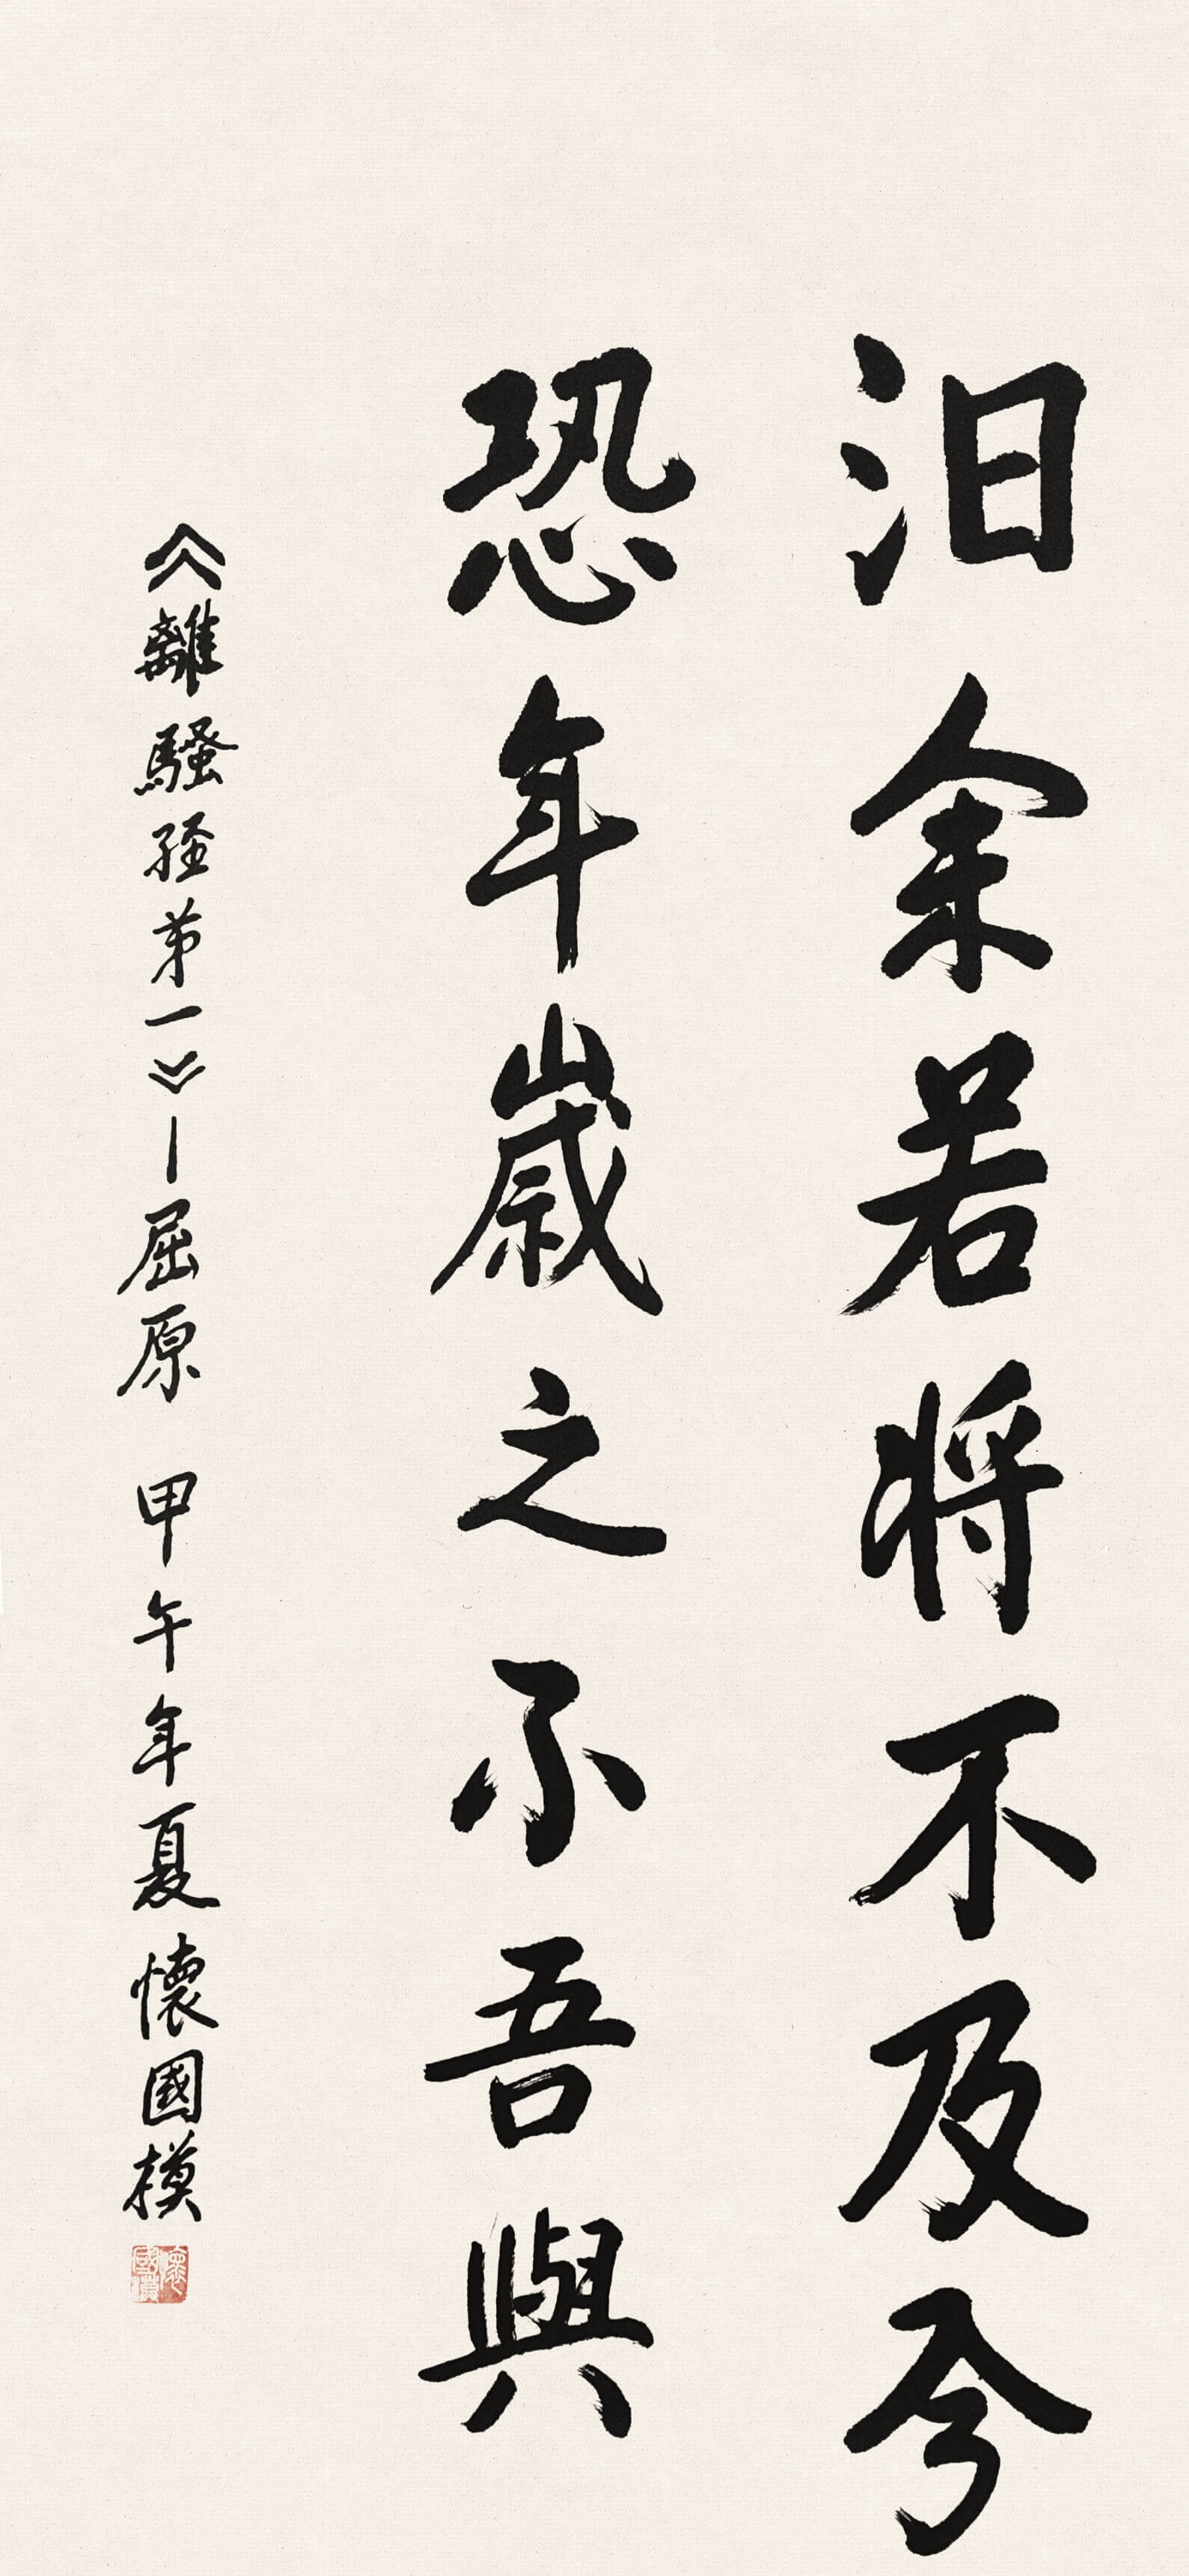 汨余若将不及兮
恐年歲之不吾與
《離騷經第一》—屈原 甲午年夏 懷國模
懷國模